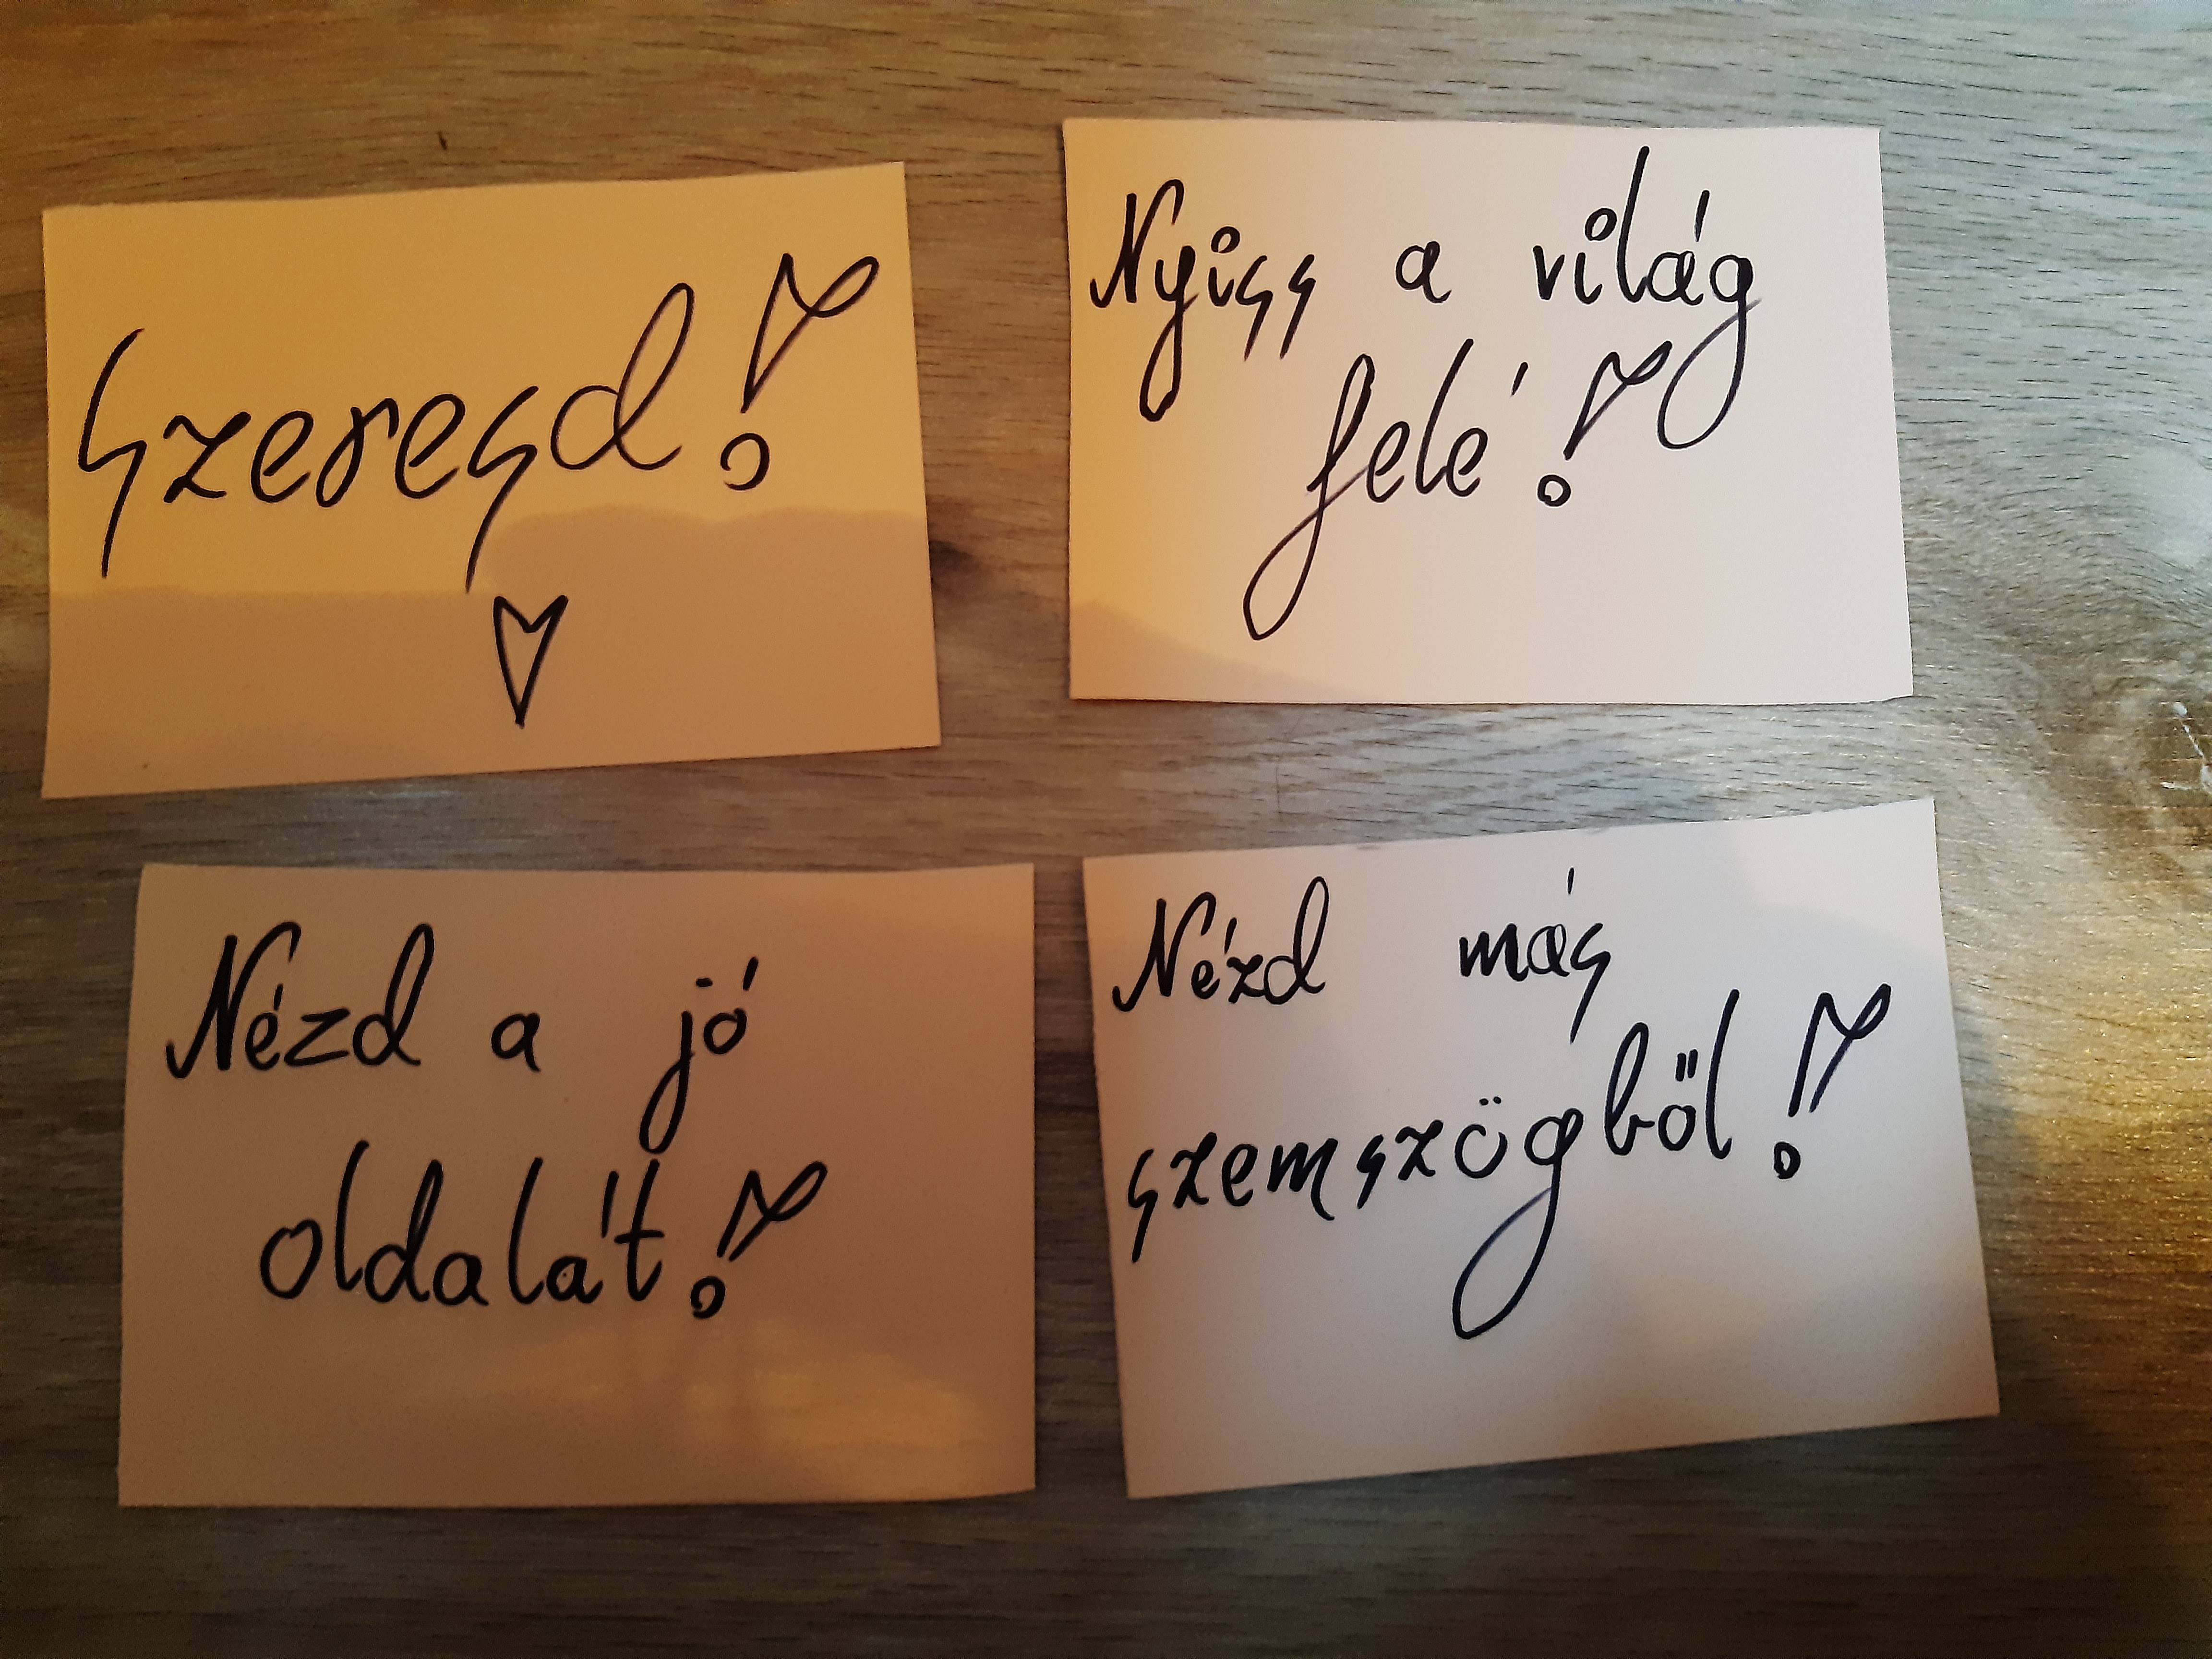 Szeresd!
Nyiss a világ
felé!
Nézd a jó
oldalát!
Nézd más
szemszögből!